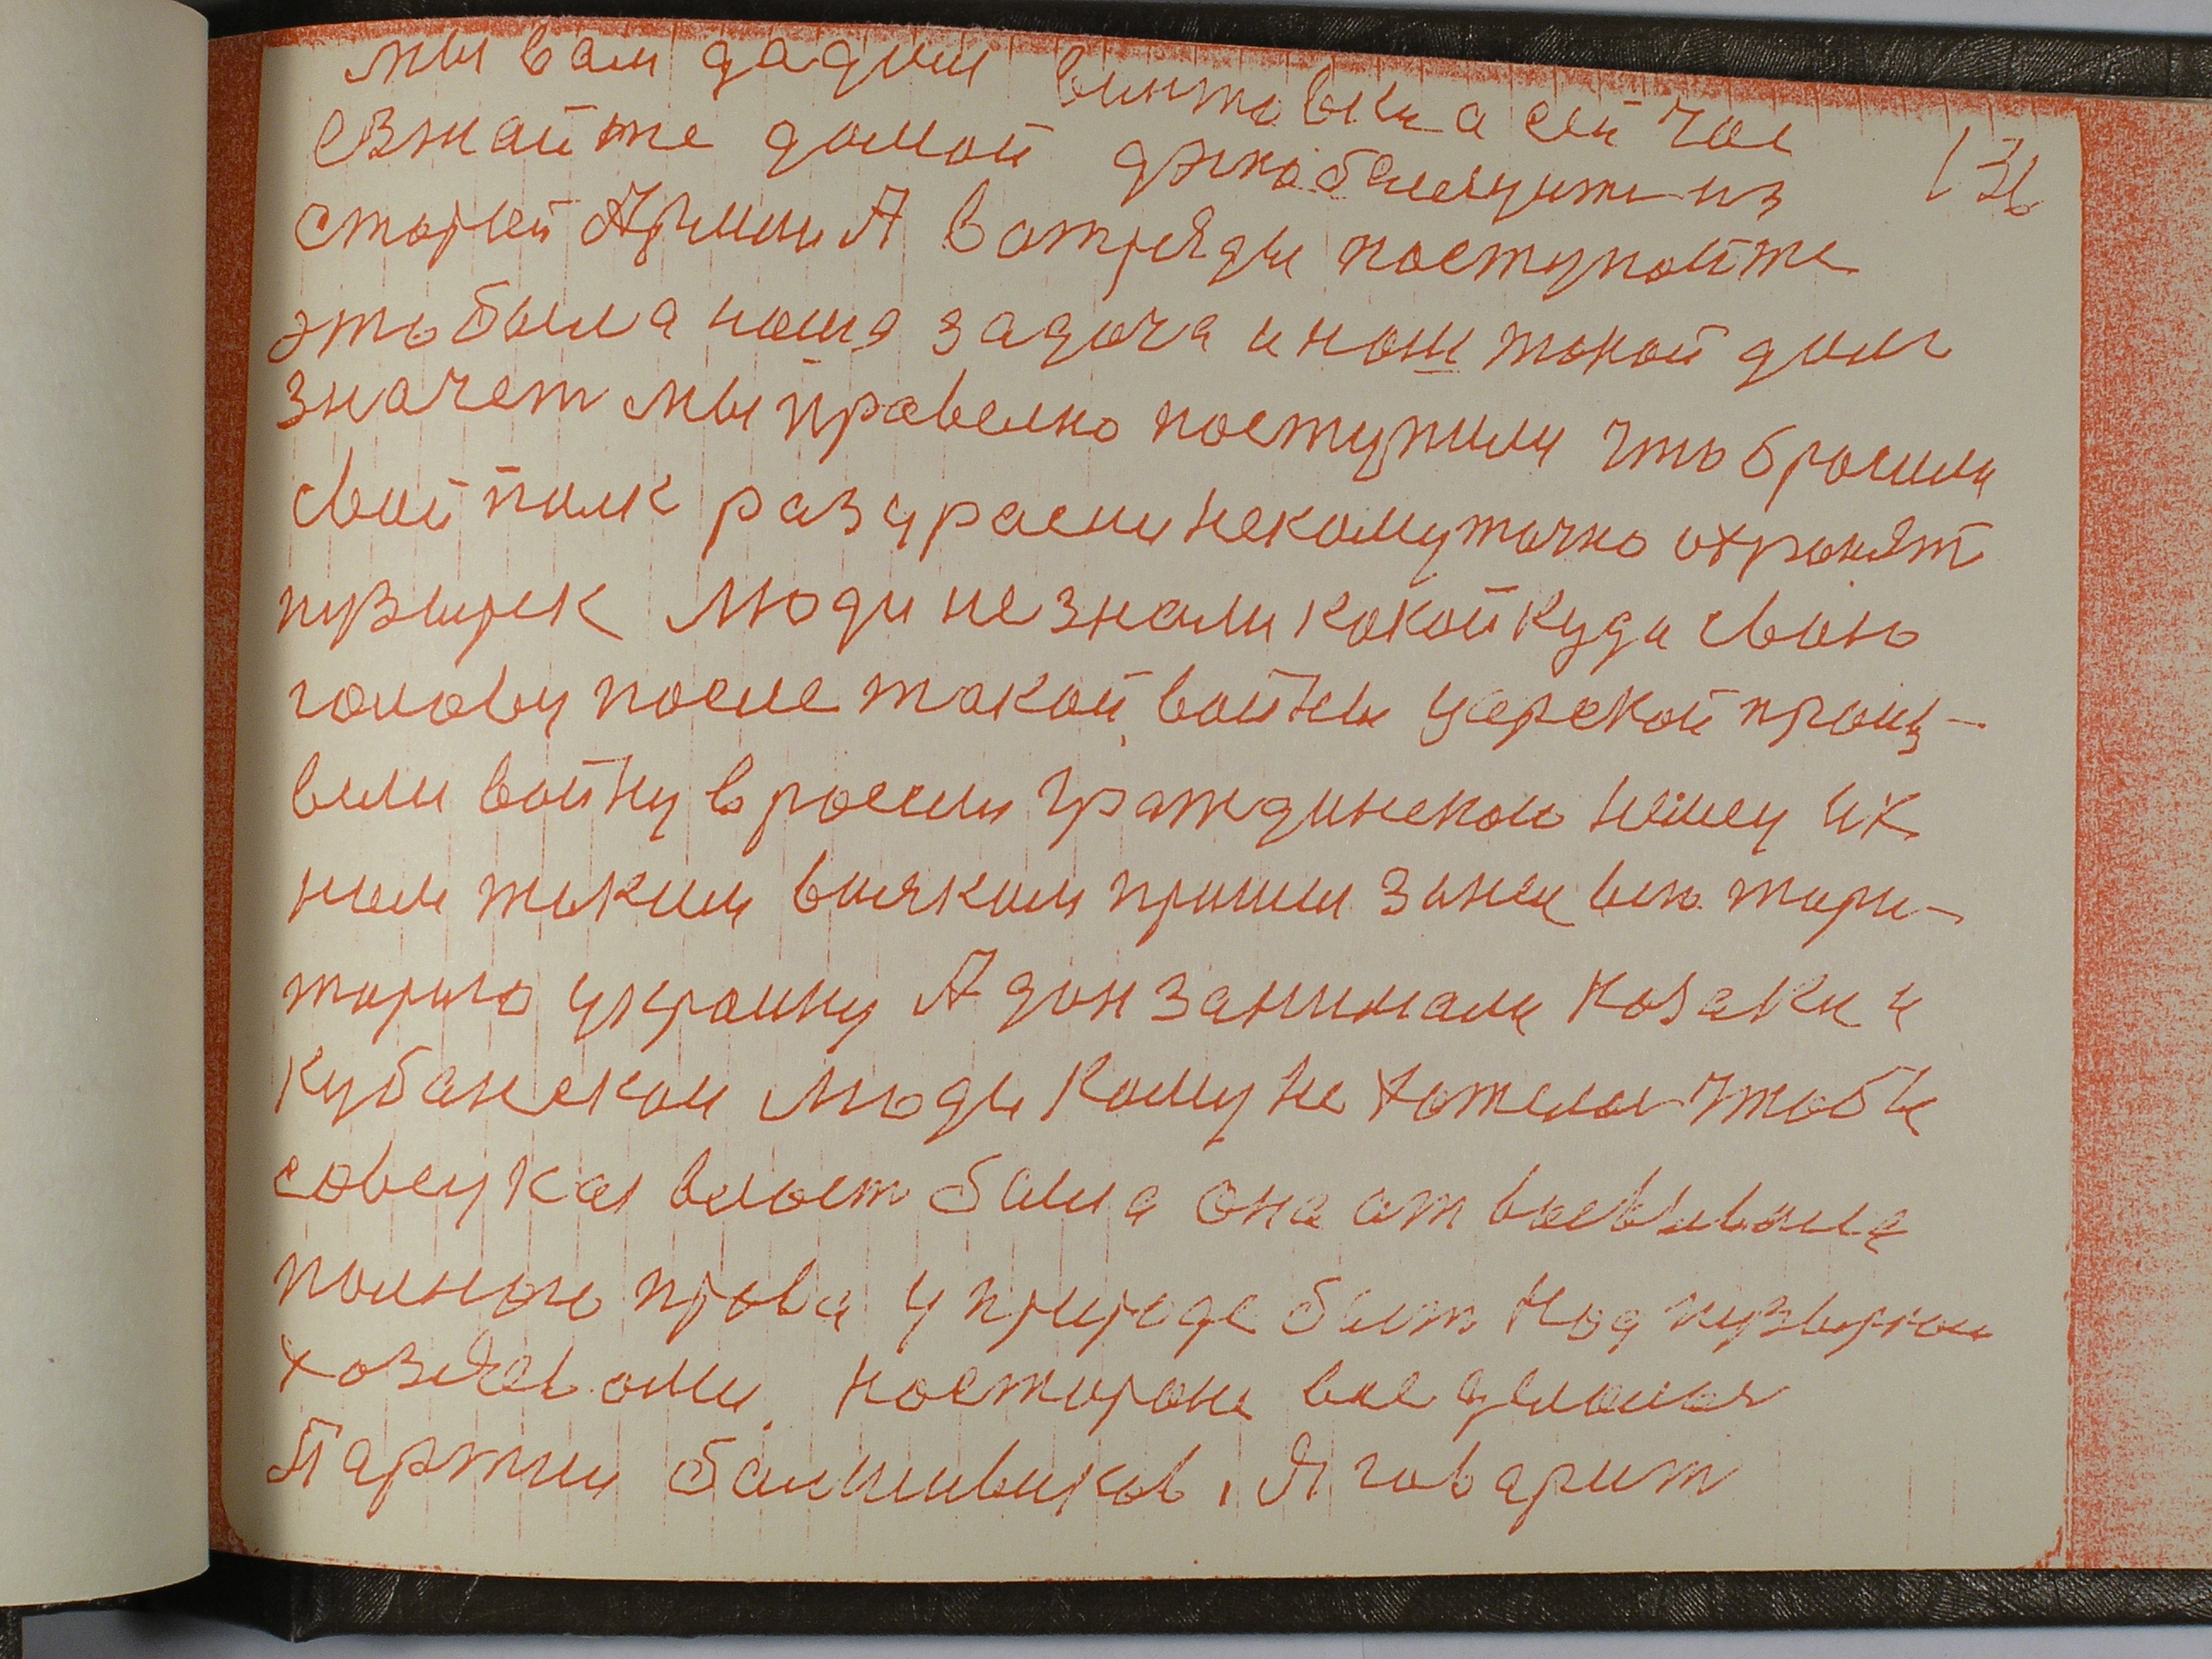 мы вам дадим винтовки а сей час
езжайте домой
136
старей Армии А вотряды поступайте
это была наша задача и наш такой долг
значет мы правелно поступили что бросили
свой полк раз урасеи некому точно охронят
пузырек люди незнали какой куда свою
голову после такой войны царской произ-
вели войну в россии Гражданскою
ним таким всяким пришли заня всю тери-
торию украину А дон занимали козаки и
кубанскои люди кому не хотелос чтобы
совецкая власт была она отвоевывала
полного права у природе быт над пузырком
хозяевами настороне все делалося
Партии болшивиков, Я говарит